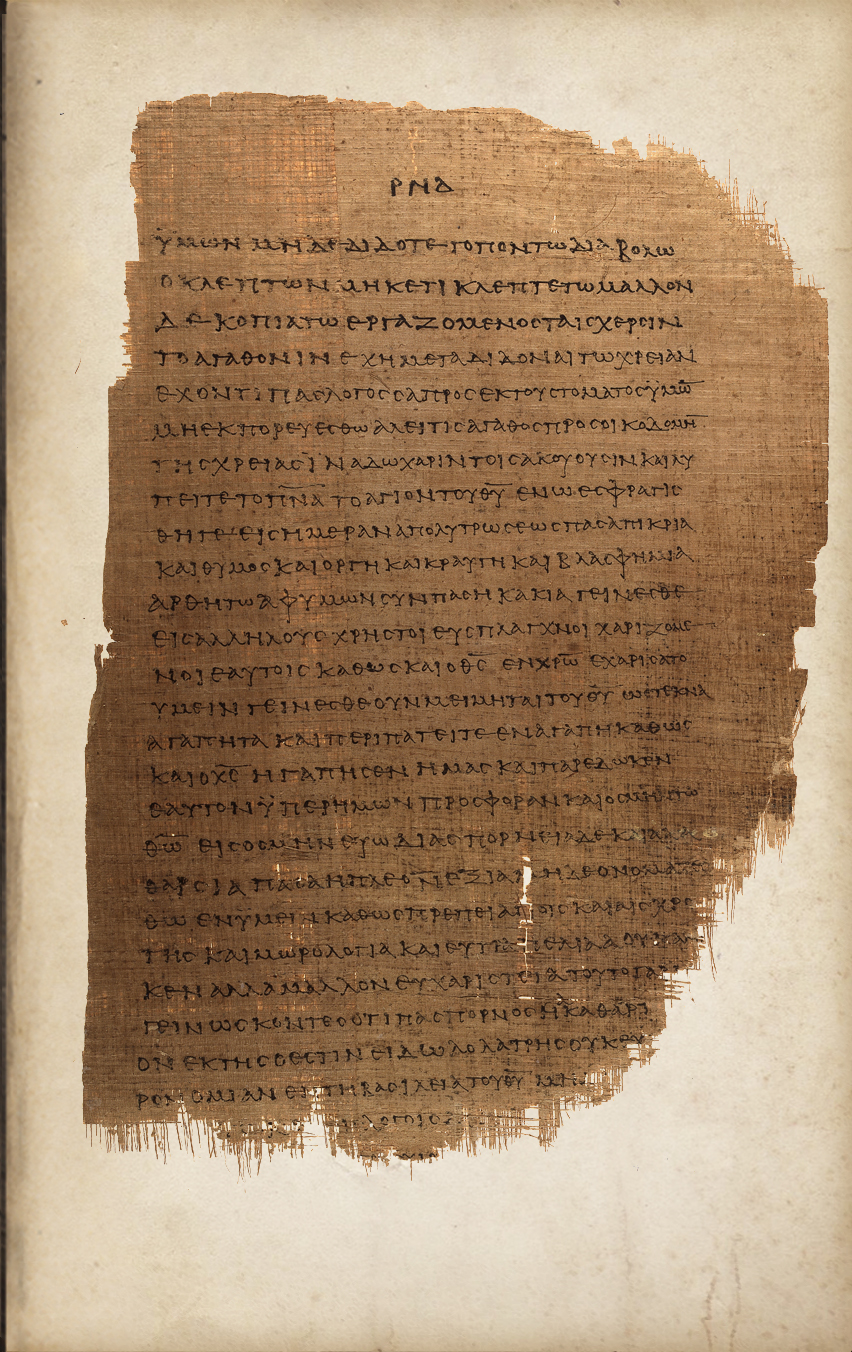 ΡΝΔ
ϋΜΩΝ ΜΗΔΕ ΔΙΔΟΤΕ ΤΟΠΟΝ ΤΩ ΔΙΑΒΟΛΩ
Ο ΚΛΕΠΤΩΝ ΜΗΚΕΤΙ ΚΛΕΠΤΕΤΩ ΜΑΛΛΟΝ
ΔΕ ΚΟΠΙΑΤΩ ΕΡΓΑΖΟΜΕΝΟϹ ΤΑΙϹ ΧΕΡϹΙΝ
ΤΟ ΑΓΑΘΟΝ ΙΝ ΕΧΗ ΜΕΤΑΔΙΔΟΝΑΙ ΤΩ ΧΡΕΙΑΝ
ΕΧΟΝΤΙ ΠΑϹ ΛΟΓΟϹ ϹΑΠΡΟϹ ΕΚ ΤΟΥ ϹΤΟΜΑΤΟϹ ϋΜΩ̅
ΜΗ ΕΚΠΟΡΕΥΕϹΘΩ ΑΛ ΕΙ ΤΙϹ ΑΓΑΘΟϹ ΠΡΟϹ ΟΙΚΟΔΟΜΗ̅
ΤΗϹ ΧΡΕΙΑϹ ΪΝΑ ΔΩ ΧΑΡΙΝ ΤΟΙϹ ΑΚΟΥΟΥϹΙΝ ΚΑΙ ΛΥ
ΠΕΙΤΕ ΤΟ Π̅Ν̅Α̅ ΤΟ ΑΓΙΟΝ ΤΟΥ Θ̅Υ̅ ΕΝ Ω ΕϹΦΡΑΓΙϹ
ΘΗΤΕ ΕΙϹ ΗΜΕΡΑΝ ΑΠΟΛΥΤΡΩϹΕΩϹ ΠΑϹΑ ΠΙΚΡΙΑ
ΚΑΙ ΘΥΜΟϹ ΚΑΙ ΟΡΓΗ ΚΑΙ ΚΡΑΥΓΗ ΚΑΙ ΒΛΑϹΦΗΜΙΑ
ΑΡΘΗΤΩ ΑΦ ΥΜΩΝ ϹΥΝ ΠΑϹΗ ΚΑΚΙΑ ΓΕΙΝΕϹΘΕ
ΕΙϹ ΑΛΛΗΛΟΥϹ ΧΡΗϹΤΟΙ ΕΥϹΠΛΑΓΧΝΟΙ ΧΑΡΙΖΟΜΕ
ΝΟΙ ΕΑΥΤΟΙϹ ΚΑΘΩϹ ΚΑΙ Ο Θ̅Ϲ̅ ΕΝ Χ̅Ρ̅Ω̅ ΕΧΑΡΙϹΑΤΟ
ΥΜΕΙΝ ΓΕΙΝΕϹΘΕ ΟΥΝ ΜΕΙΜΗΤΑΙ ΤΟΥ Θ̅Υ̅ ΩϹ ΤΕΚΝΑ
ΑΓΑΠΗΤΑ ΚΑΙ ΠΕΡΙΠΑΤΕΙΤΕ ΕΝ ΑΓΑΠΗ ΚΑΘΩϹ
ΚΑΙ Ο Χ̅Ϲ̅ ΗΓΑΠΗϹΕΝ ΗΜΑϹ ΚΑΙ ΠΑΡΕΔΩΚΕΝ
ΕΑΥΤΟΝ ϋΠΕΡ ΗΜΩΝ ΠΡΟϹΦΟΡΑΝ ΚΑΙ
Θ̅Ω̅ ΕΙϹ ΟϹΜΗΝ ΕΥΩΔΙΑϹ ΠΟΡΝΕΙΑ ΔΕ ΚΑΙ
ΘΑΡϹΙΑ ΠΑϹΑ Η ΠΛΕΟΝΕΞΙΑ ΜΗΔΕ
ΘΩ ΕΝ ΥΜΕΙΝ ΚΑΘΩϹ ΠΡΕΠΕΙ ΑΓΙΟΙϹ ΚΑΙ ΑΙϹΧΡΟ
ΤΗϹ ΚΑΙ ΜΩΡΟΛΟΓΙΑ ΚΑΙ ΕΥΤΡΑΠΕΛΙΑ Α ΟΥΚ
ΚΕΝ ΑΛΛΑ ΜΑΛΛΟΝ ΕΥΧΑΡΙϹΤΕΙΑ ΤΟΥΤΟ ΓΑΡ
ΓΕΙΝΩϹΚΟΝΤΕϹ ΟΤΙ ΠΑϹ ΠΟΡΝΟϹ Η ΑΚΑΘΑΡΤ
ΟΝ ΕΚΤΗϹ Ο ΕϹΤΙΝ ΕΙΔΩΛΟΛΑΤΡΗϹ ΟΥΚ
ΡΟΝΟΜΙΑΝ ΕΝ ΤΗ ΒΑϹΙΛΕΙΑ ΤΟΥ Θ̅Υ̅
ΛΟΓΟΙϹ